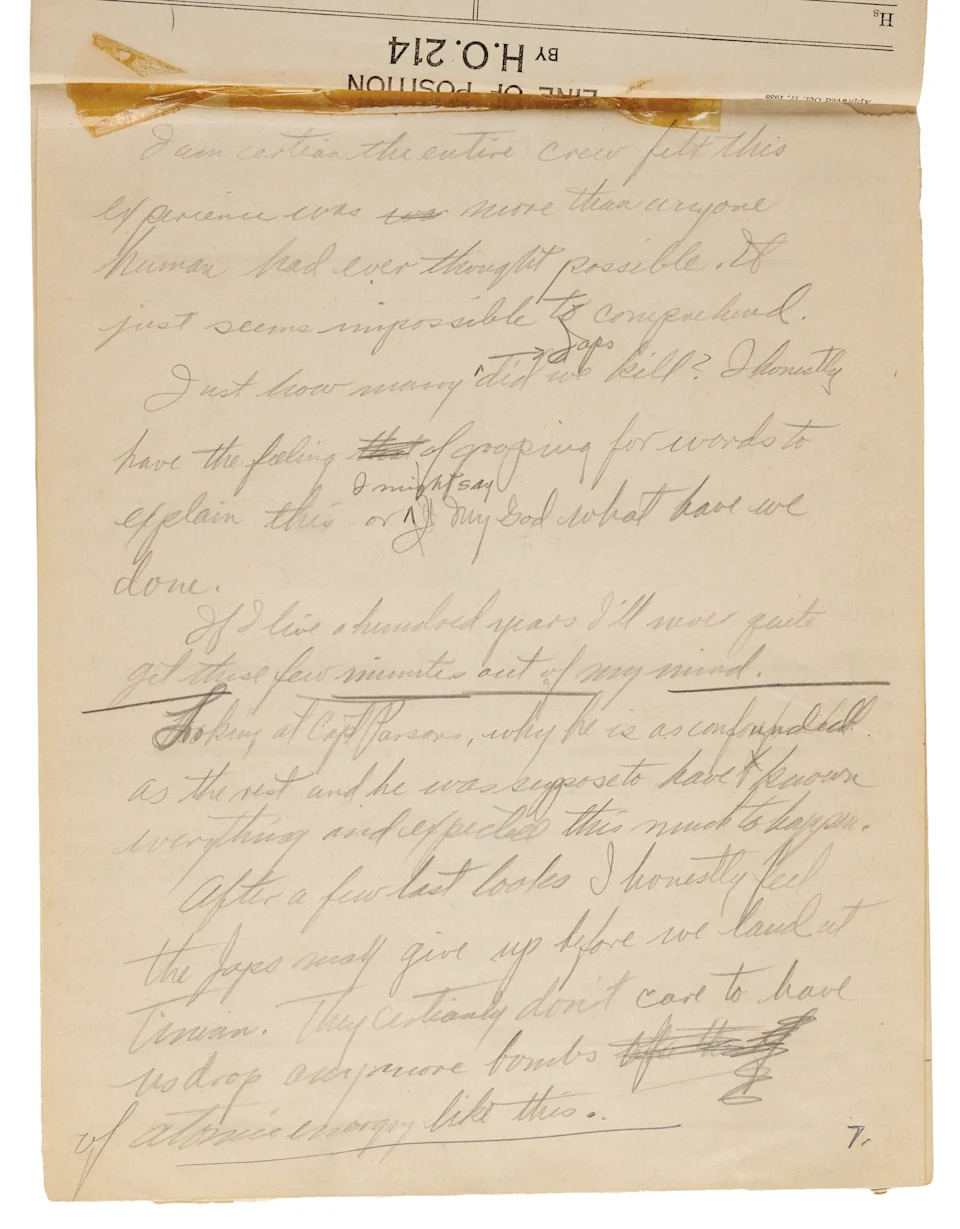 Hs
BY H.O. 214
LINE OF POSITION
Approved Oct. 17, 1938
I am certian the entire crew felt this
experience was more than anyone
human had ever thought possible. It
just seems impossible to comprehend.
Japs
Just how many did we kill? I honestly
have the feeling that of groping for words to
I might say
explain this or My God what have we
done.
If I live a hundred years I'll never quite
get these few minutes out of my mind.
Looking at Capt Parsons, why he is as confounded as
as the rest and he was suppose to have known
everything and expected this much to happen.
After a few last looks I honestly feel
the Japs may give up before we land at
Tinian. They certianly don't care to have
us drop anymore bombs
of atomic energy like this.
7.